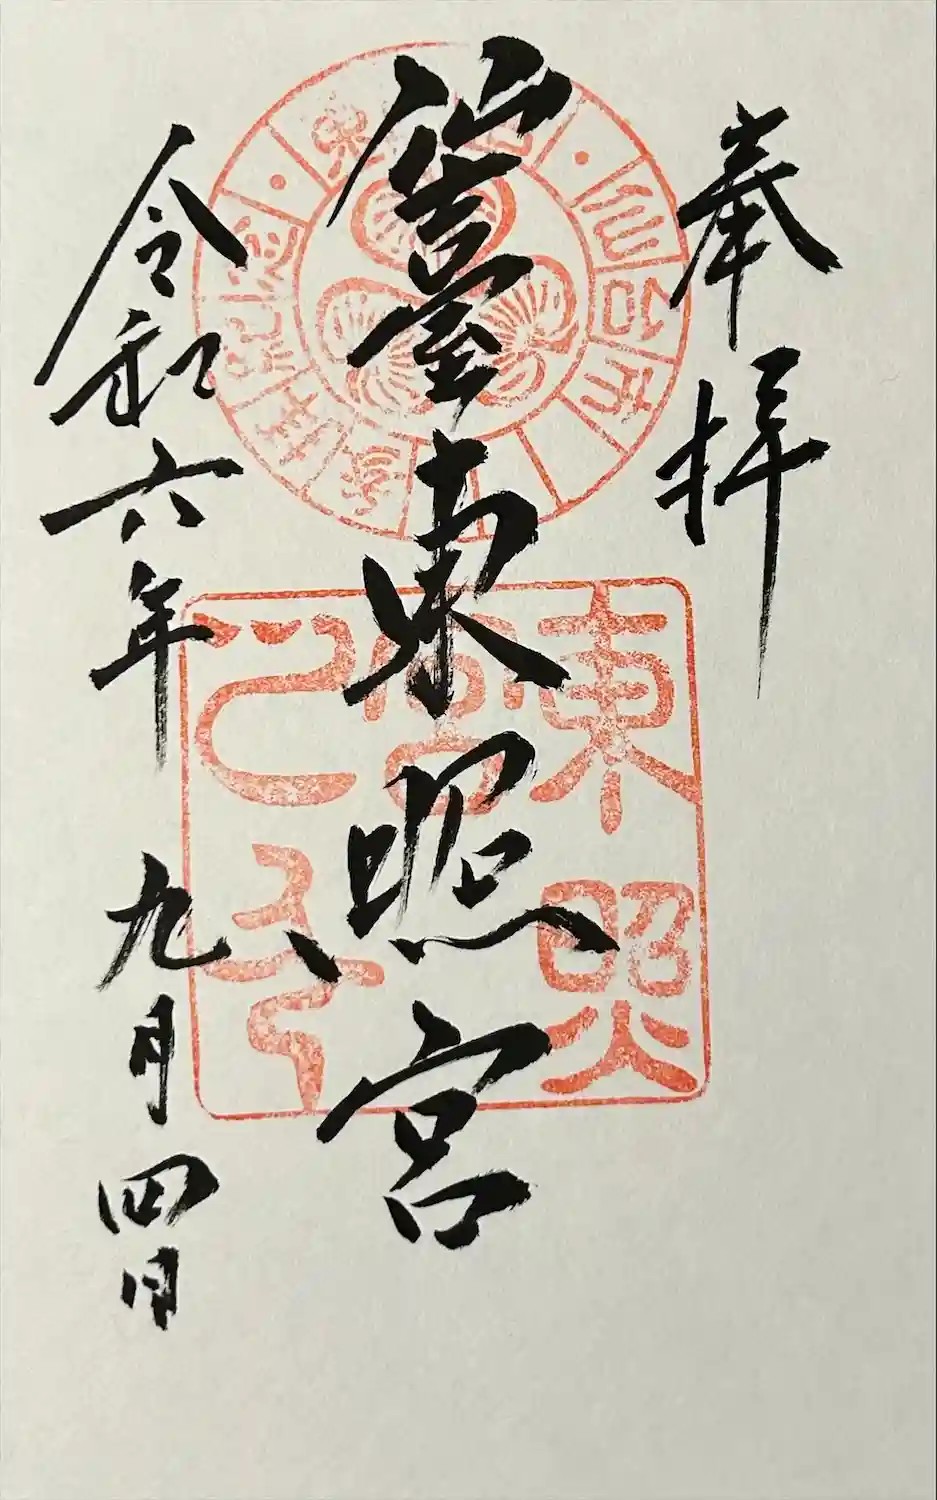 奉拝
仙臺東照宮
令和六年九月四日
東照
宮